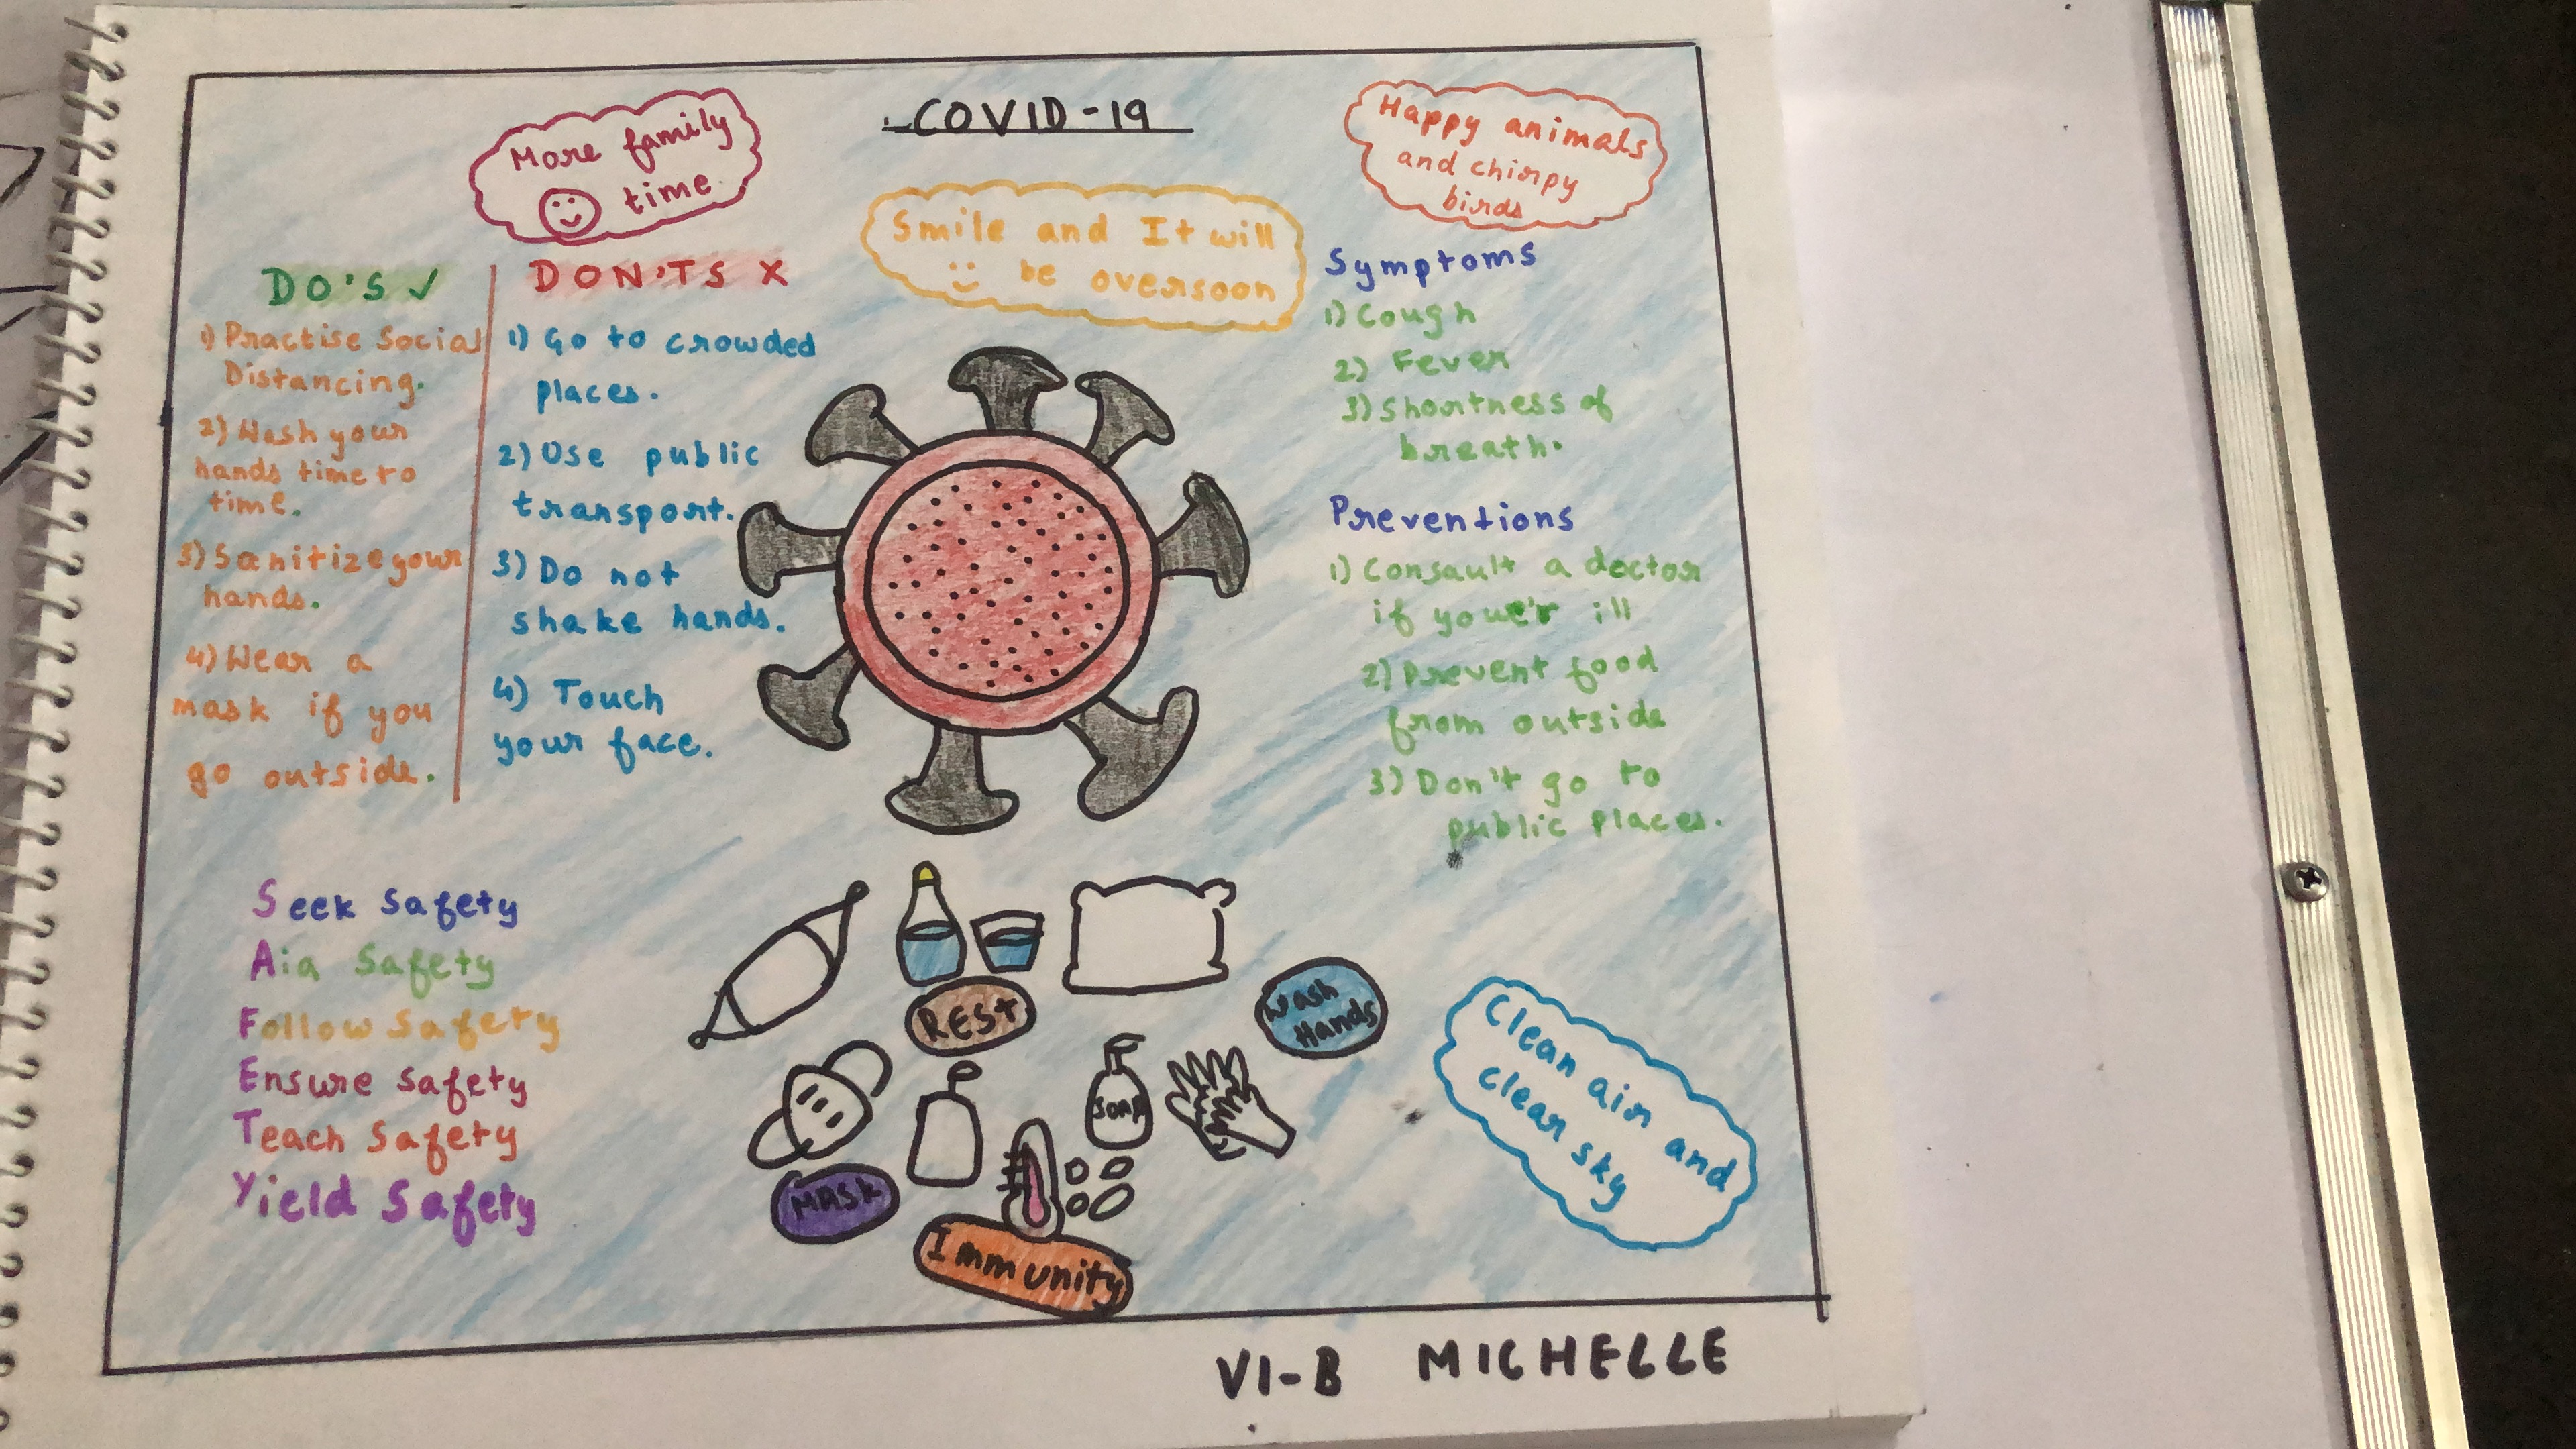 COVID-19
More family
time
Happy animals
and chirpy
birds
Smile and It will
be oversoon
DO'S ✓
1) Practise Social
Distancing.
2) Wash your
hands time to
time.
3) Sanitize your
hands.
4) Wear a
mask if you
go outside.
DON'TS X
1) Go to crowded
places.
2) Use public
transport.
3) Do not
shake hands.
4) Touch
your face.
Symptoms
1) Cough
2) Fever
3) Shortness of
breath.
Preventions
1) Consault a doctor
if you ill
2) Prevent food
from outside
3) Don't go to
public places.
Seek Safety
Aid Safety
Follow Safety
Ensure Safety
Teach Safety
Yield Safety
REST
Wash
Hands
SOAP
MASK
Immunity
Clean air and
clear sky
VI-B MICHELLE